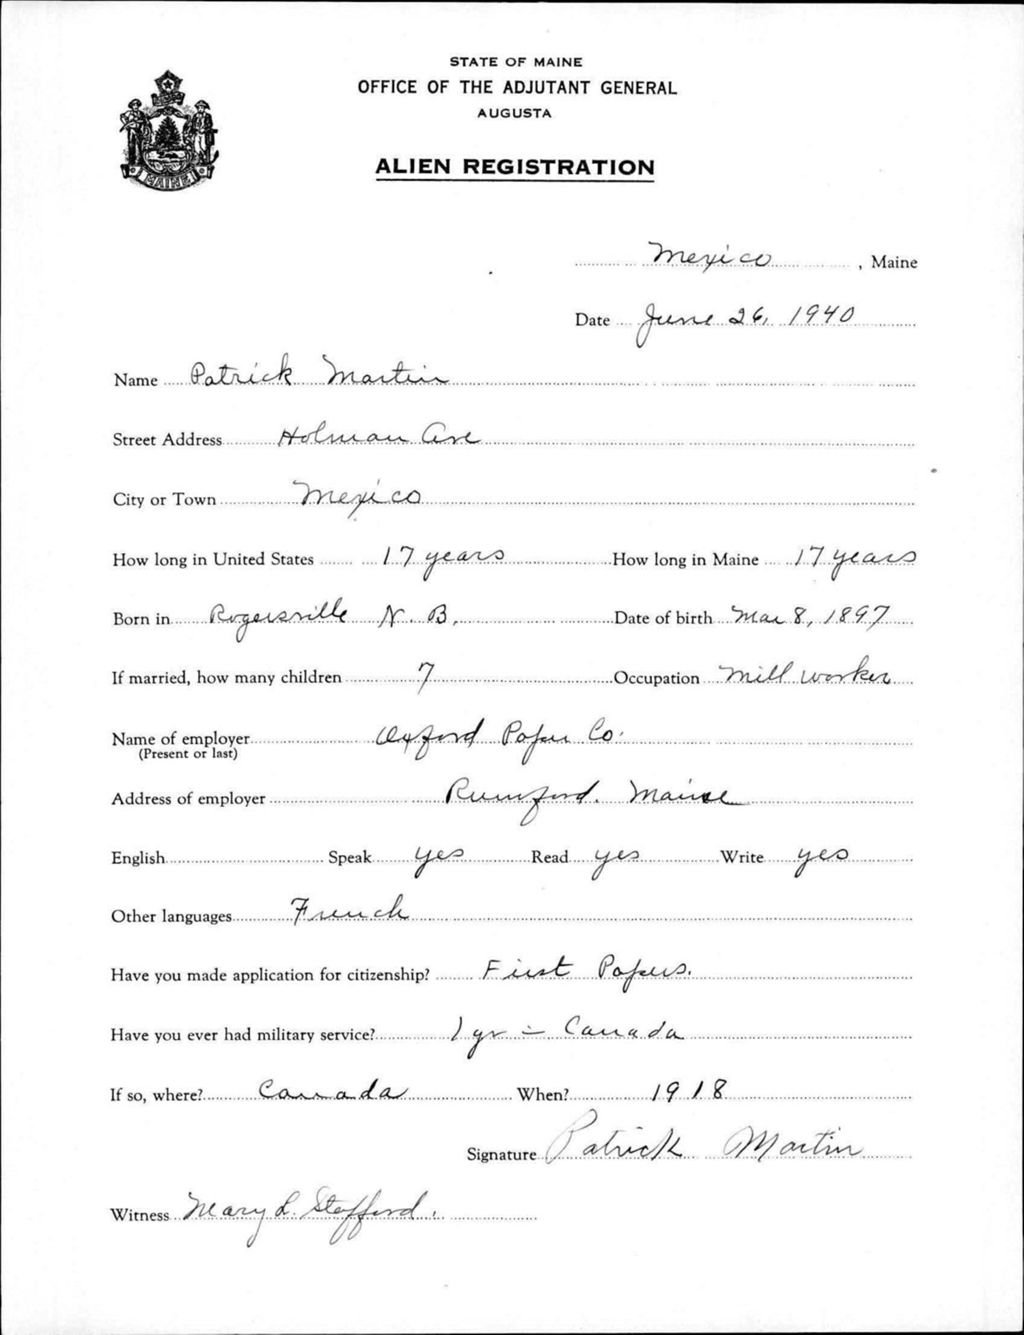 STATE OF MAINE
OFFICE OF THE ADJUTANT GENERAL
AUGUSTA
ALIEN REGISTRATION
MAINE
Mexico, Maine
Date June 26, 1940
Name Patrick Martin
Street Address Holman Ave
City or Town Mexico
How long in United States 17 years How long in Maine 17 years
Born in Rogersville N. B. Date of birth Mar 8, 1897
If married, how many children 7 Occupation Mill worker
Name of employer Oxford Paper Co.
(Present or last)
Address of employer Rumford. Maine
English Speak yes Read yes Write yes
Other languages French
Have you made application for citizenship? First Papers.
Have you ever had military service? 1 yr - Canada
If so, where? Canada When? 1918
Signature Patrick Martin
Witness Mary L. Stafford.